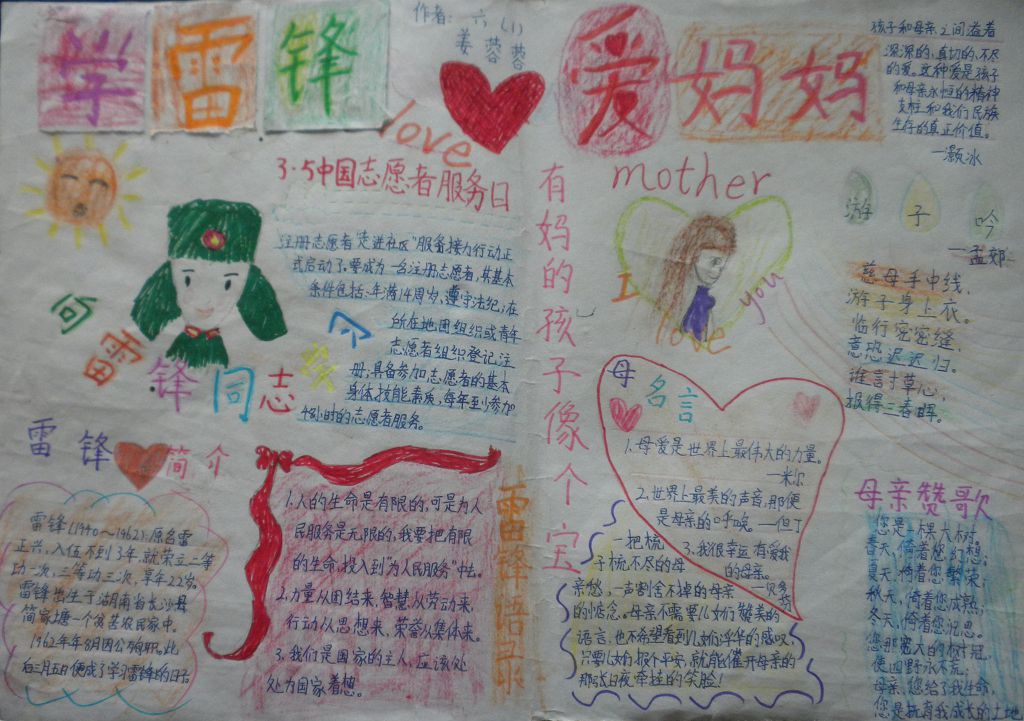 学雷锋
作者：六(1)
姜蓉蓉
love
3·5中国志愿者服务日
注册志愿者"走进社区"服务接力行动正
式启动了。要成为一名注册志愿者，其基本
条件包括：年满14周岁，遵守法纪，在
所在地团组织或青年
志愿者组织登记注
册；具备参加志愿者的基本
身体技能素质，每年至少参加
48小时的志愿者服务。
向雷锋同志
雷锋简介
雷锋(1940～1962)：原名雷
正兴，入伍不到3年，就荣立二等
功一次，三等功三次，享年22岁。
雷锋出生于湖南省长沙县
简家塘一个贫苦农民家中。
1962年年8月因公殉职。此
后三月五日便成了学习雷锋的日子
雷锋语录
1.人的生命是有限的，可是为人
民服务是无限的，我要把有限
的生命，投入到"为人民服务"中去。
2.力量从团结来，智慧从劳动来，
行动从思想来，荣誉从集体来。
3.我们是国家的主人，应该处
处为国家着想。
爱妈妈
孩子和母亲之间溢着
深深的，真切的，不尽
的爱。这种爱是孩子
和母亲永恒的精神
支柱和我们民族
生存的真正价值。
—灏冰
有妈的孩子像个宝
mother
I love you
游子吟
—孟郊
慈母手中线，
游子身上衣。
临行密密缝，
意恐迟迟归。
谁言寸草心，
报得三春晖。
母名言
1.母爱是世界上最伟大的力量。
—米尔
2.世界上最美的声音，那便
是母亲的呼唤 —但丁
3.我很幸运有爱我
的母亲。
—贝多芬
一把梳
子梳不尽的母
亲愁，一声割舍不掉的母亲
的惦念。母亲不需要儿女们赞美的
语言，也不希望看到儿女们浮华的感叹，
只要儿女们报个平安，就能催开母亲的
那张日夜牵挂的笑脸！
母亲赞歌
您是一棵大树，
春天，倚着您幻想；
夏天，倚着您繁荣；
秋天，倚着您成熟；
冬天，倚着您沉思。
您那宽大的树冠，
使四野永不荒，
母亲，您给了我生命，
您是抚育我成长的土地